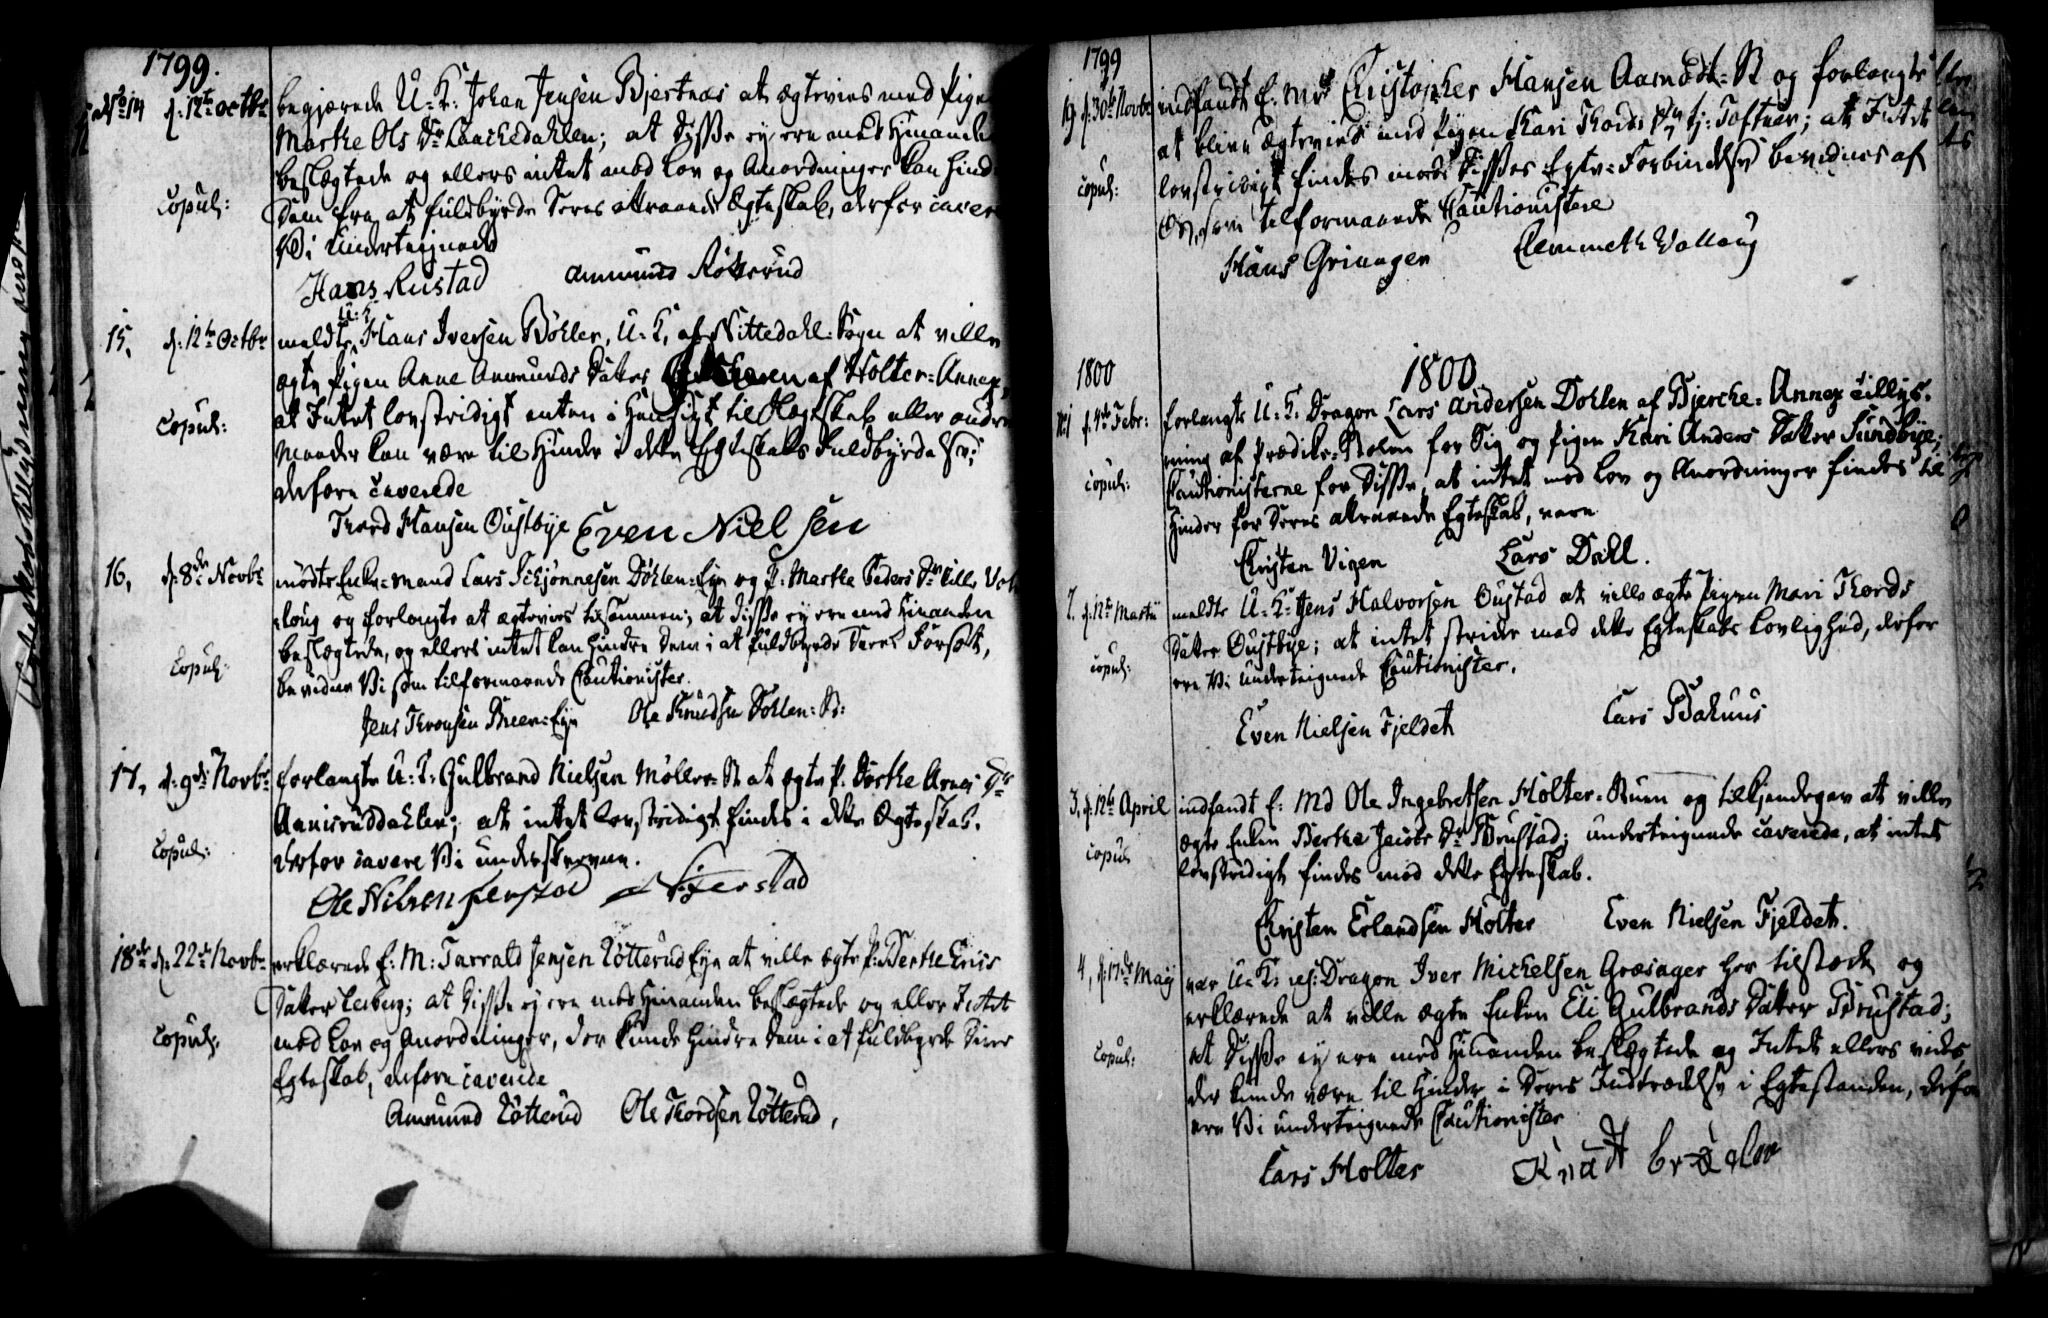 1799.
No 14 d: 12te Octbr begjærede U: K: Johan Jensen Bjertnæs at ægtevies med Pigen
Marthe Ols Dr Lauchedahlen; at Disse ey ere med Hinanden
beslægtede og ellers intet mod Lov og Anordninger kan hind-
Copul: Dem fra at fuldbyrde Deres attraaede Ægteskab, derfor cavere
Vi Undertegnede
Hans Rustad Ammund Rötterud
U: K:
15, d: 12te Octbr meldte Hans Iversen Böhler, U: K, af Nittedahl Sogn at ville
ægte Pigen Anne Amunds Datter af Holter-Annex,
Copul: at Intet lovstridigt enten i Hensigt til Slægtskab eller andre
Maader kan være til Hinder i dette Egteskabs Fuldbyrdelse;
derfore caverede
Thord Hansen Oustbye Even Nielsen
16, d: 8de Novbr mödte Enke-mand Lars Schjönnesen Döhlen-Eye og P: Marthe Peders Dr
loug og forlangte at ægtevies tilsammen; at disse ey ere med Hinanden
Copul: beslægtede, og ellers intet kan hindre Dem i at fuldbyrde Deres Forsæt,
bevidner Vi som tilformaaende Cautionister.
Jens Thronsen Eye Ole Knudsen Dohlen
17, d: 9de Novbr forlangte U: K: Gulbrand Nielsen Möller at ægte P. Dorthe Arnes Dr
Aanisruddahlen; at intet lovstridigt findes i dette Ægteskab.
Copul: derfor cavere Vi underskrevne.
Ole Nilsen
18de d: 22de Novbr erklærede E: M: Tarrald Jensen Lötterud Eye at ville ægte P: Berthe Erics
Datter; at Disse ey ere med Hinanden beslægtede og eller Intet
Copul. mod Lov og Anordninger, der kunde hindre Dem i at fuldbyrde Deres
Egteskab, derfore caverede
Ammund Lötterud Ole Thordsen Lötterud,
1799
19 d: 30te Novbr indfandt E: Md Christopher Hansen Aamodt og forlangte
at blive ægteviet med Pigen Kari Thords Dr tj: Toftner; at Intet
copul: lovstridigt findes mod disses Egte-Forbindelse bevidnes af
Os, som tilformaaende Cautionistere
Hans Grinager Clemmeth Vollaug
1800
1800
No 1 d. 4de Febr: forlangte U: K. Dragon Lars Andersen Dohlen af Bjerche-Annex Tillys-
ning af Prædike-Stolen for Sig og Pigen Kari Anders Datter Sundbye;
copul: Cautionisterne for Disse, at intet mod Lov og Anordninger findes til
Hinder for Deres attraaede Egteskab, vare
Christen Vigen Lars Dahl.
2. d. 12te Martii meldte U: K: Jens Halvorsen Oustad at ville ægte Pigen Mari Thords
Datter Oustbye; at intet strider mod dette Egteskabs Lovlighed, derfor
copul: ere Vi undertegnede Cautionister.
Even Nielsen Fjeldet Lars Bakuus
3, d. 12te April indfandt E: Md Ole Ingebretsen Holter-Stuen og tilkjendegav at ville
ægte Enken Berthe Jacobs Dr Brustad; undertegnede caverede, at intet
copul lovstridigt findes mod dette Egteskab.
Christen Erlandsen Holter Even Nielsen Fjeldet.
4, d: 17de Maij var U: K: res: Dragon Iver Michelsen Græsager her tilstæde og
erklærede at ville ægte Enken Eli Gulbrands Datter Brustad;
copul: at Disse ey ere med Hinanden beslægtede og Intet ellers vides
der kunde være til Hinder i Deres Indtrædelse i Egtestanden, derfor
ere Vi undertegnede Cautionister
Lars Holter Knudt